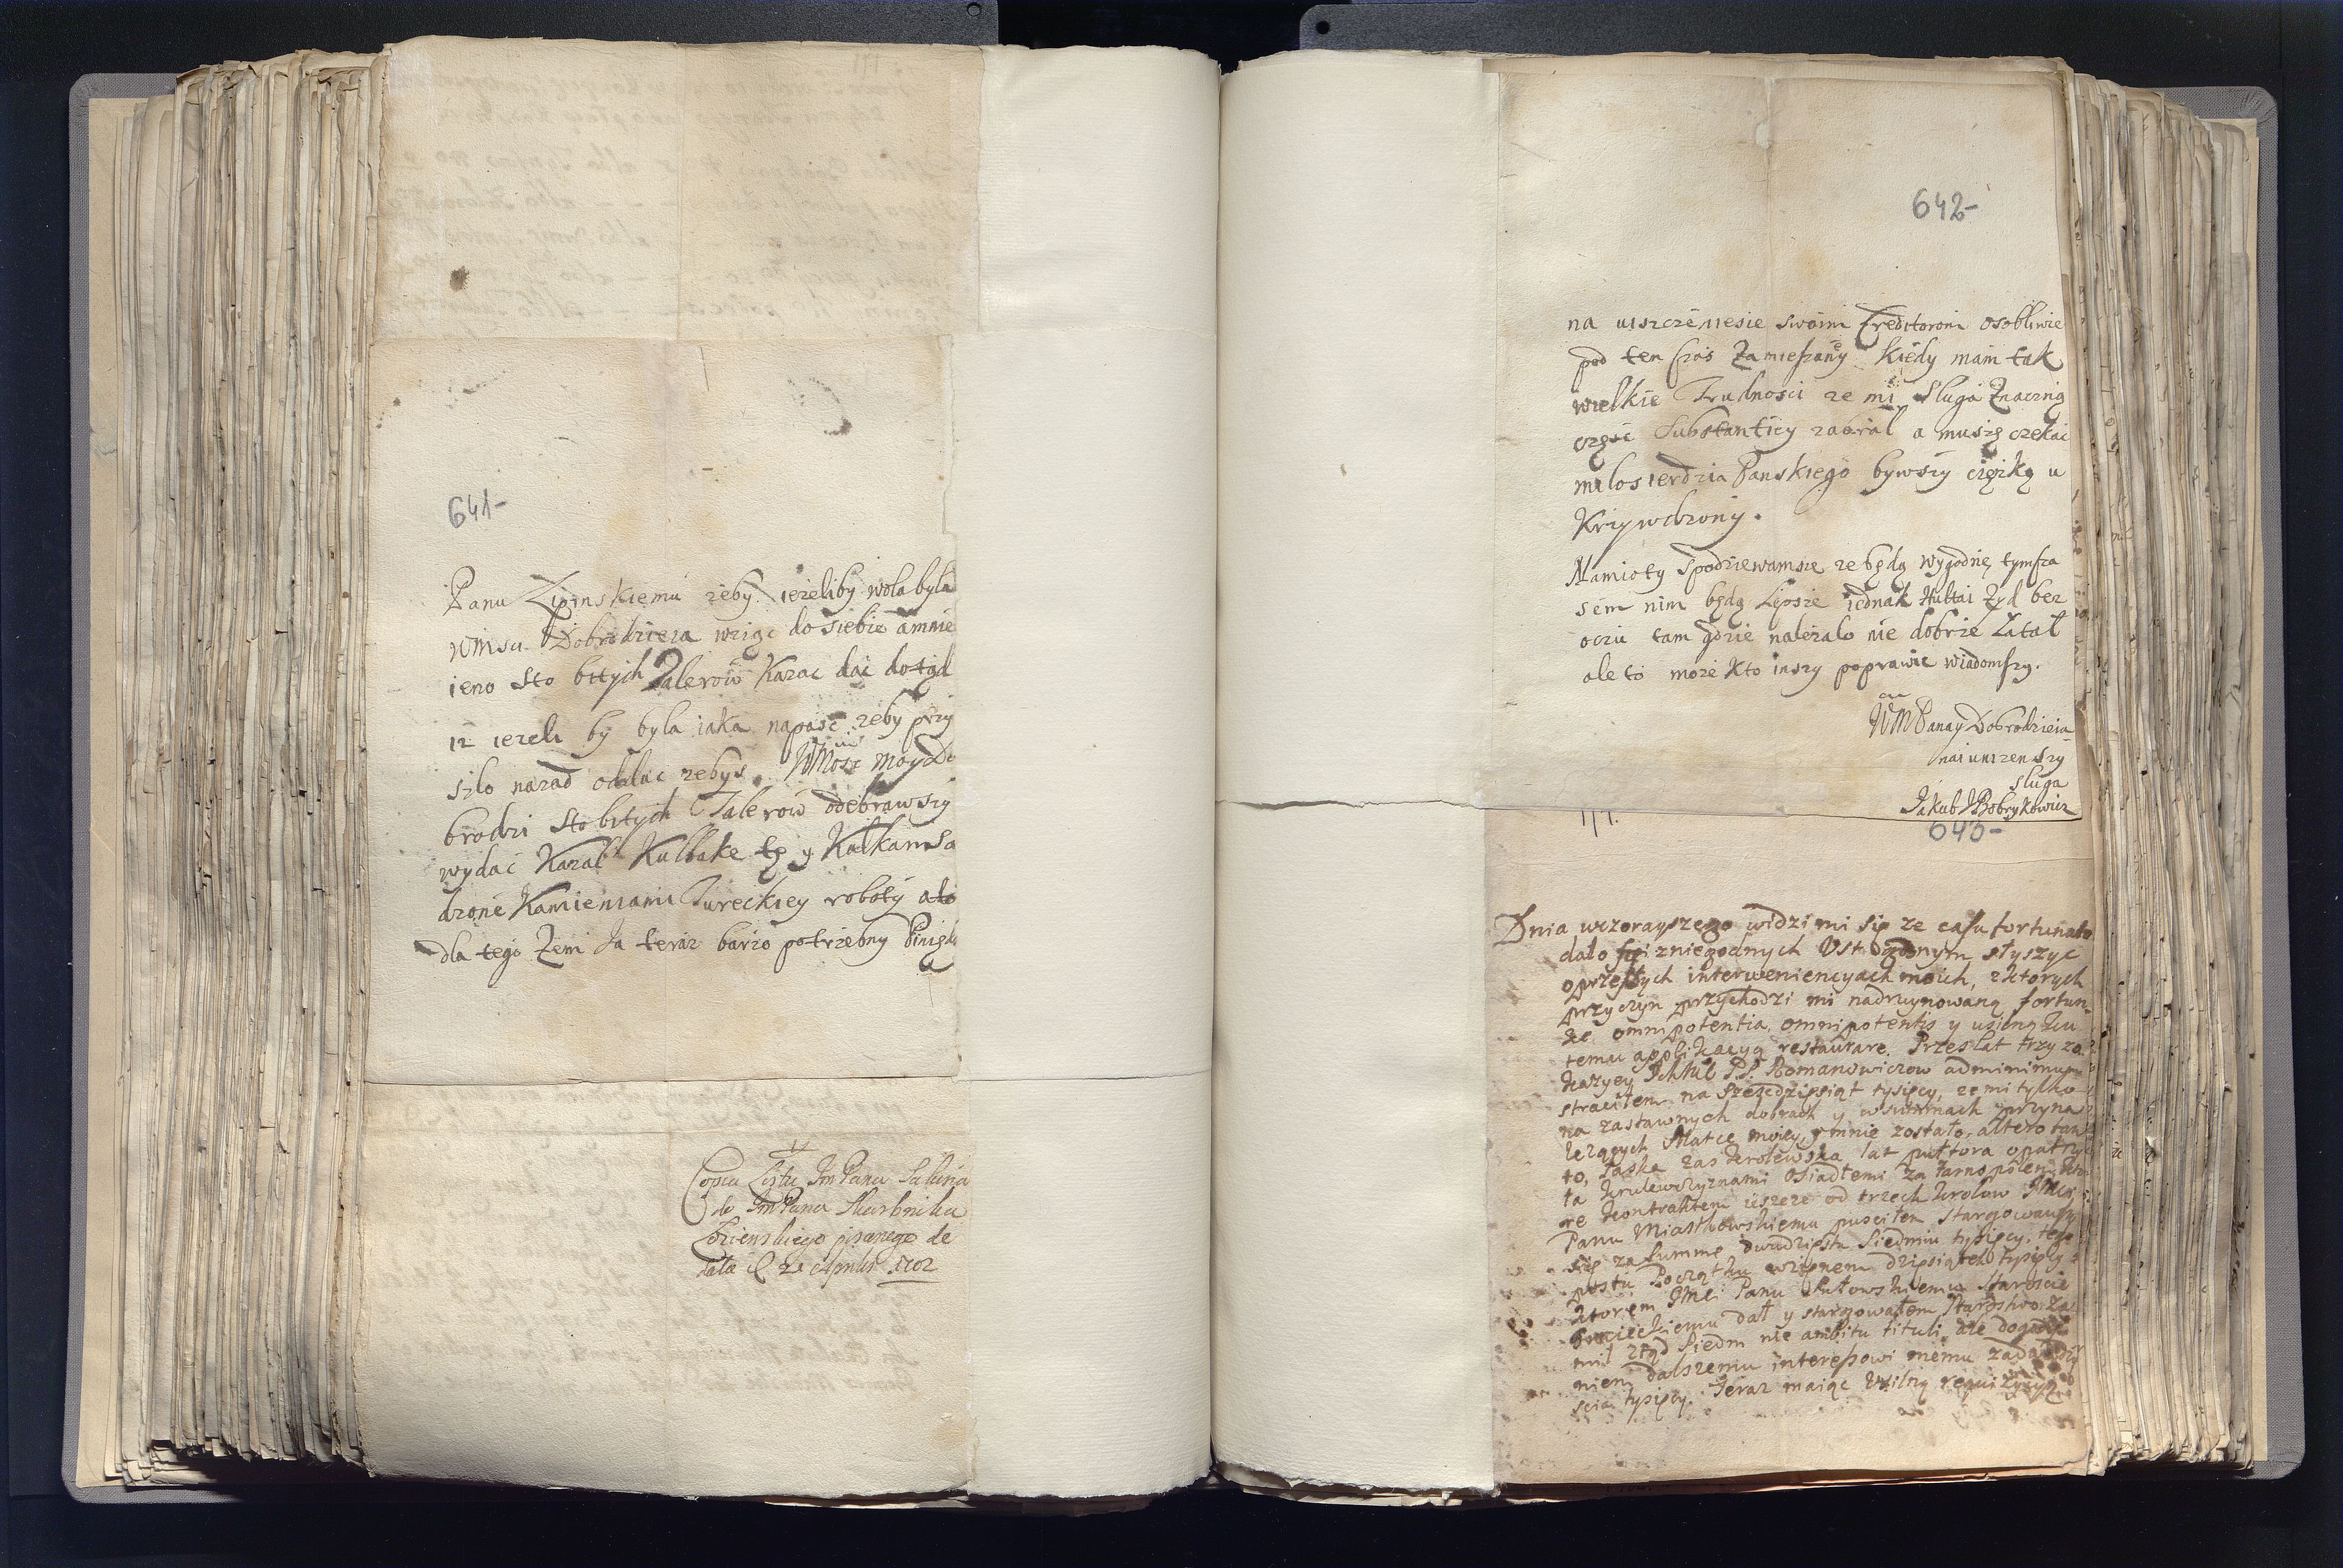 641-
Panu Lipinskiemu zeby iezeliby wola była
WMsci Dobrodzieia wziąc do siebie a mnie
ieno sto bitych Talerow Kazac dac do tąd
iz iezeli by byla iaka napasc zeby przy
szło nazad oddac zebys WMosc moy Do
brodzi sto bitych Talerow odebrawszy
wydac Kazał Kulbake tę y Kałkan sa
dzone Kamieniami Tureckiey roboty a to
dla tego zem Ja teraz barzo potrzebny Pinięd
Copia Listu JmPana
do JmPana Skarbnika
pisanego de
data 1702
642-
na uiszczenie sie swoim Creditorom osobliwie
pod ten czas zamieszany kiedy mam tak
wielkie Trudnosci ze mi Sługa znaczną
częsc Substantiey zabrał a muszę czekac
milosierdzia Panskiego bywszy cięzką u
Krzywdzony.
Namioty spodziewamsie ze będą wygodnę tymcza
sem nim będą Lepsze iednak Hultai Zyd bez
oczu tam gdzie nalezalo nie dobrze Łatał
ale to moze kto inszy poprawic wiadomszy.
WMPana y Dobrodzieia
naiunizenszy
sluga
Jakub Bobrykowicz
643-
Dnia wczorayszego widzi mi się ze casu fortunato
dało się z niegodnych Ust słyszyc
o przeszłych interweniencyach moich, z ktorych
przyczyn przychodzi mi nadruynowaną fortun
omnipotentia, omnipotentis y usilną ku
temu applikacyą restaurare. Przes lat trzy
kazyey Schkul P.P. Romanowiczow ad minimum
straciłem na szescdziesiąt tysięcy, ze mi tylko
na zastawnych dobrach y w summach przyna
lezących Matce moiey, y mnie zostało, altero tan
to, Łaska zas krolewska lat pułtora opatrzy
ta krulewszyznami Osiadłemi za Tarnopolem kto
re kontraktem ieszcze od trzech krolow JMci
Panu Miaskowskiemu pusciłem stargowawszy
się za summę dwudziestu siedmiu tysięcy, tego
postu Początku wziąnem dziesiątek tysięcy
ktorem JMci Panu Staroscie
dał y stargowałem Starostwo
mil ztąd siedm nie ambitu tituli ale
niem dalszemu interessowi memu
scia tysięcy. Teraz maiąc